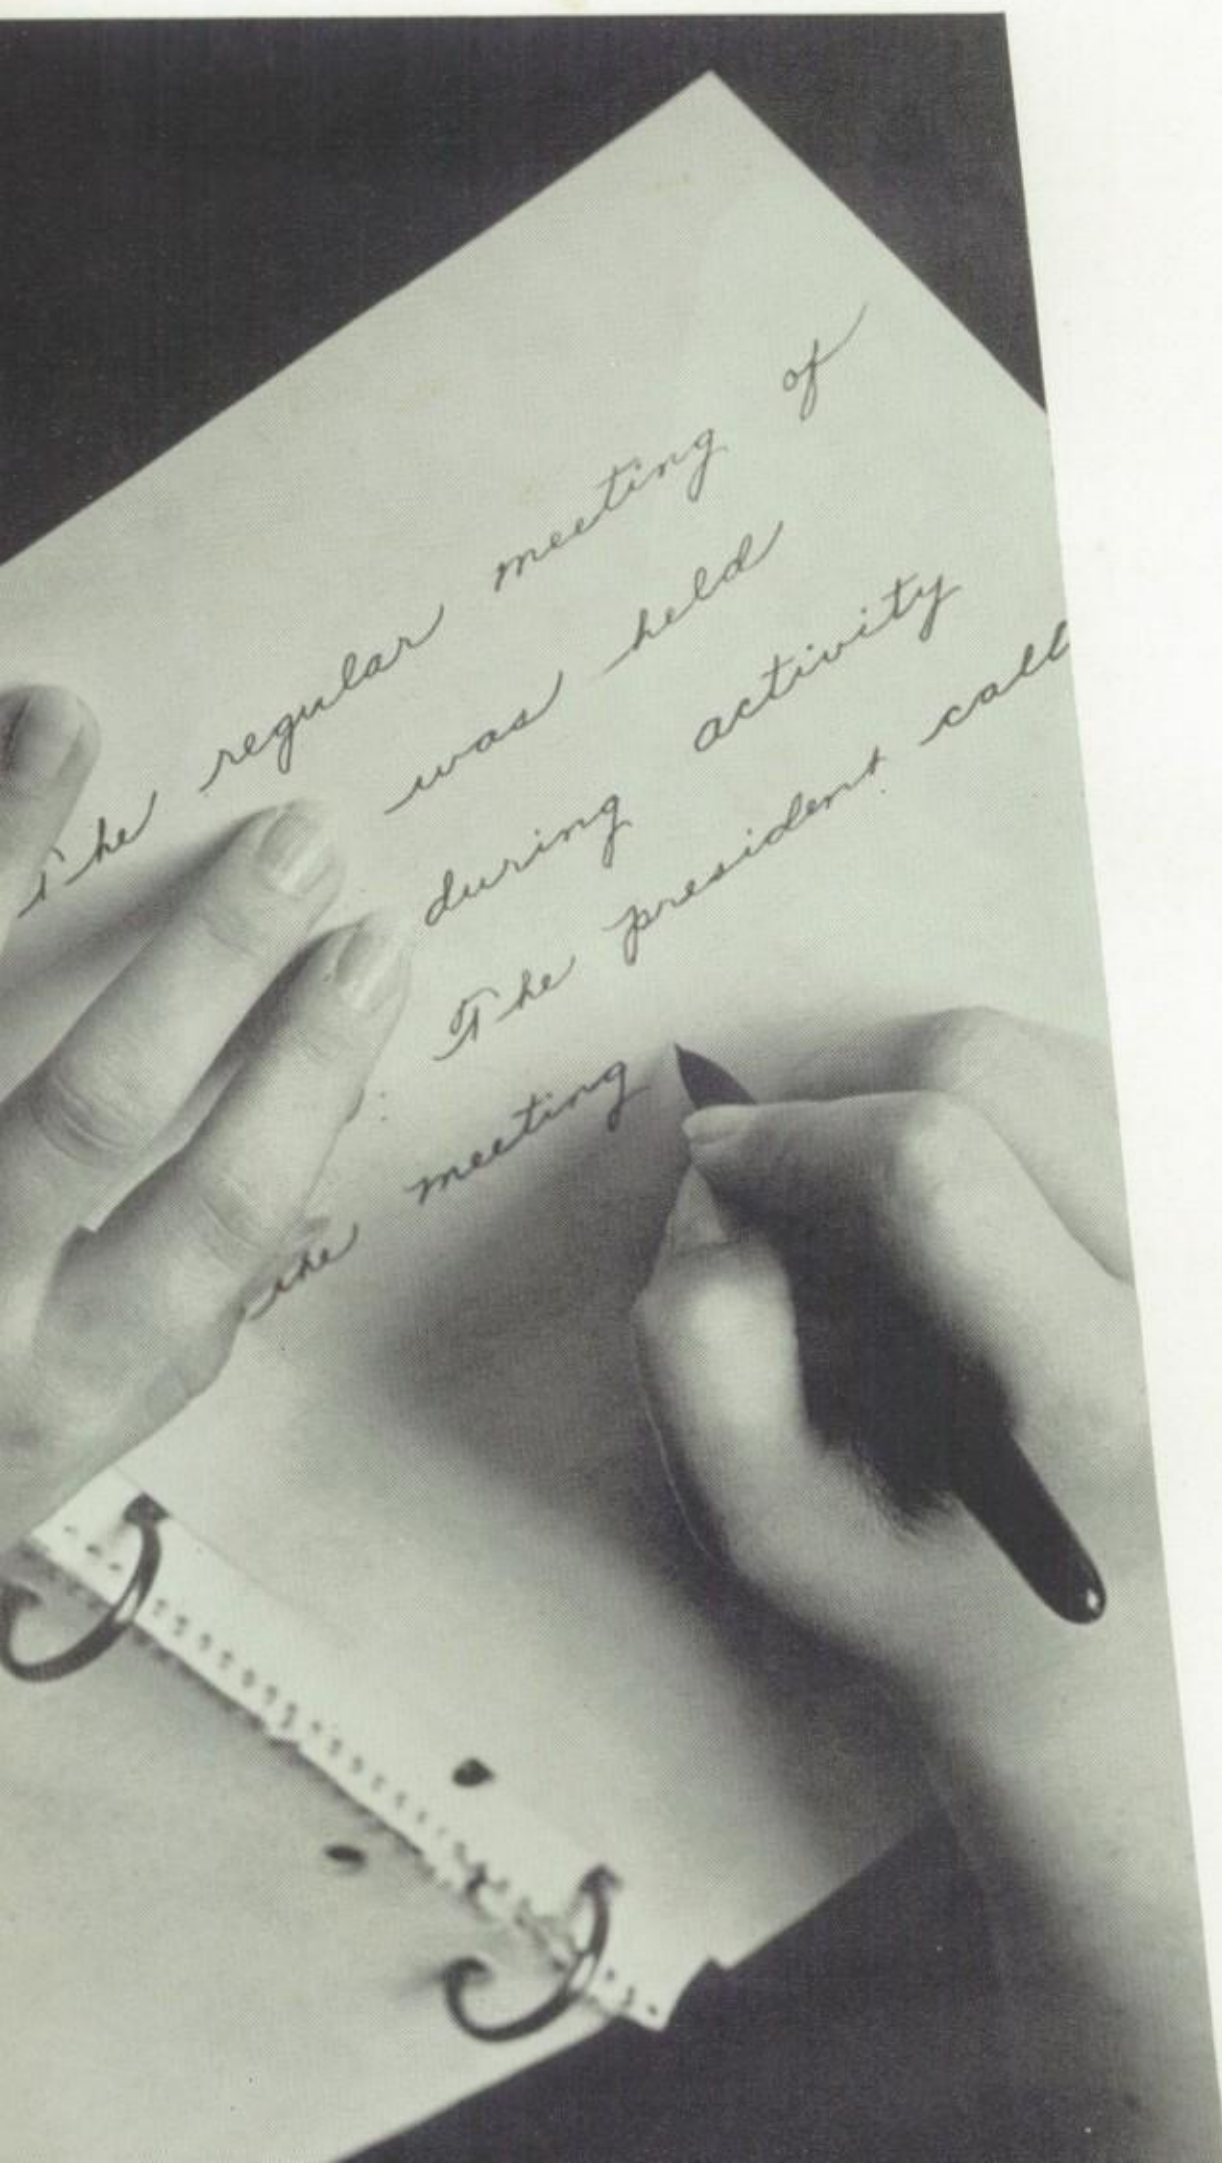 The regular meeting of
was held
during activity
The president call
the meeting